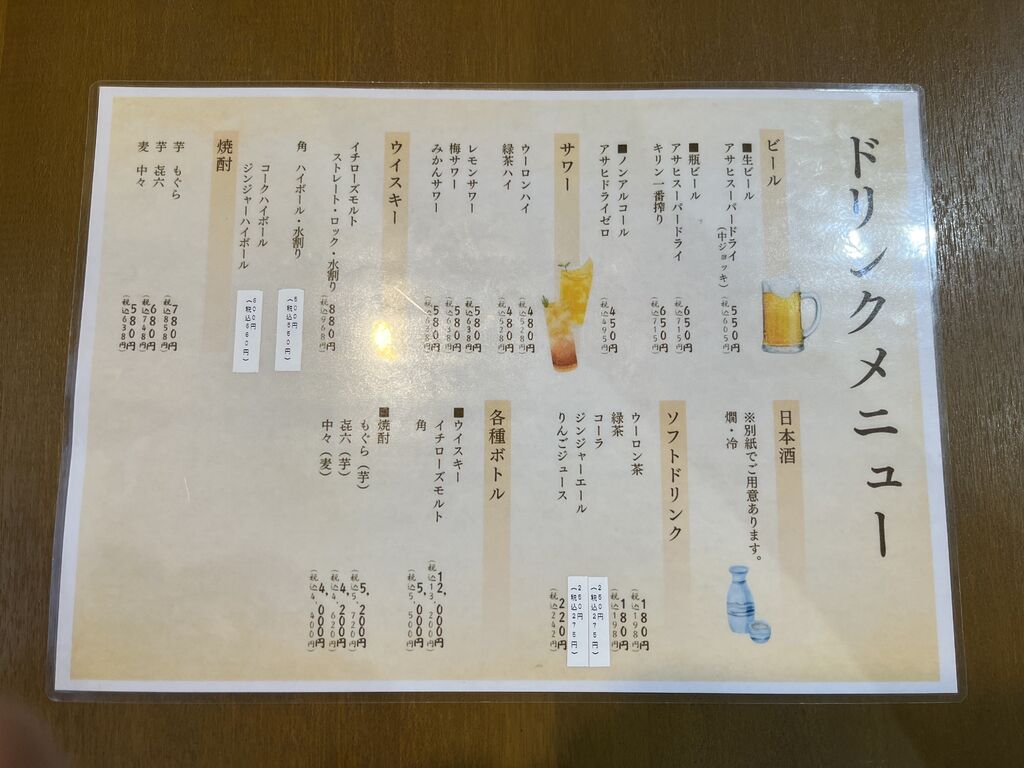 ドリンクメニュー
ビール
■生ビール
アサヒスーパードライ
(中ジョッキ) 550円
(税込605円)
■瓶ビール
アサヒスーパードライ 650円
(税込715円)
キリン一番搾り 650円
(税込715円)
■ノンアルコール
アサヒドライゼロ 450円
(税込495円)
サワー
ウーロンハイ 480円
(税込528円)
緑茶ハイ 480円
(税込528円)
レモンサワー 580円
(税込638円)
梅サワー 580円
(税込638円)
みかんサワー 580円
(税込638円)
ウイスキー
イチローズモルト
ストレート・ロック・水割り 880円
(税込968円)
角 ハイボール・水割り 500円
(税込550円)
コークハイボール
ジンジャーハイボール 600円
(税込660円)
焼酎
芋 もぐら 780円
(税込858円)
芋 㐂六 680円
(税込748円)
麦 中々 580円
(税込638円)
日本酒
※別紙でご用意あります。
燗・冷
ソフトドリンク
ウーロン茶 180円
(税込198円)
緑茶 180円
(税込198円)
コーラ 250円
(税込275円)
ジンジャーエール 250円
(税込275円)
りんごジュース 220円
(税込242円)
各種ボトル
■ウイスキー
イチローズモルト 12,000円
(税込13,200円)
角 5,000円
(税込5,500円)
■焼酎
もぐら(芋) 5,200円
(税込5,720円)
㐂六(芋) 4,200円
(税込4,620円)
中々(麦) 4,000円
(税込4,400円)